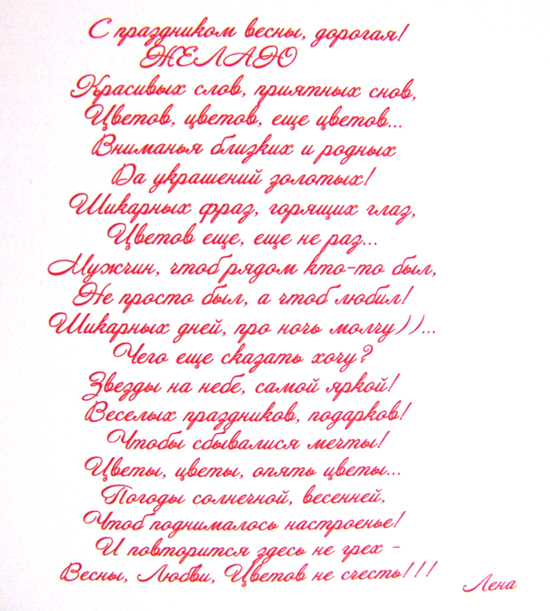 С праздником весны, дорогая!
ЖЕЛАЮ
Красивых слов, приятных снов,
Цветов, цветов, еще цветов...
Вниманья близких и родных
Да украшений золотых!
Шикарных фраз, горящих глаз,
Цветов еще, еще не раз...
Мужчин, чтоб рядом кто-то был,
Не просто был, а чтоб любил!
Шикарных дней, про ночь молчу))...
Чего еще сказать хочу?
Звезды на небе, самой яркой!
Веселых праздников, подарков!
Чтобы сбывалися мечты!
Цветы, цветы, опять цветы...
Погоды солнечной, весенней,
Чтоб поднималось настроенье!
И повторится здесь не грех -
Весны, Любви, Цветов не счесть!!!
Лена